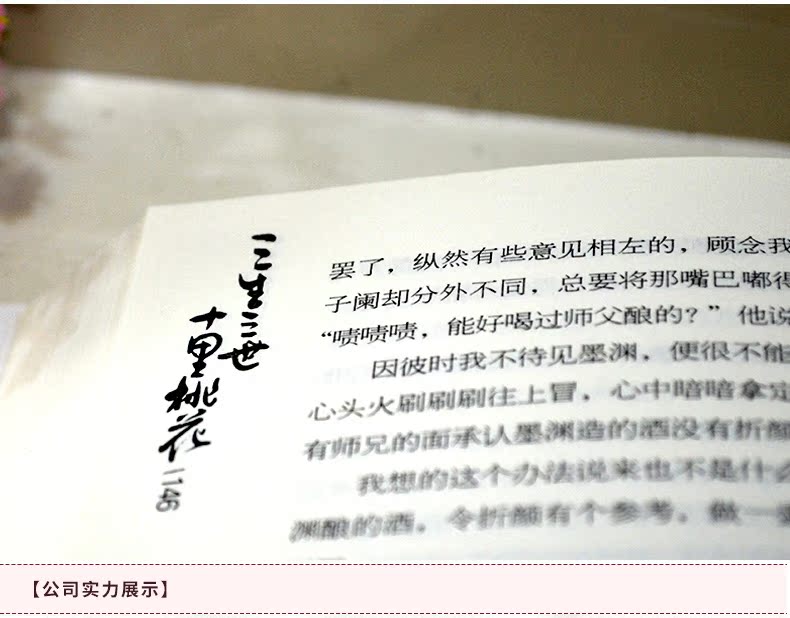 三生三世
十里桃花
146
罢了，纵然有些意见相左的，顾念我
子阑却分外不同，总要将那嘴巴嘟得
“啧啧啧，能好喝过师父酿的？”他说
因彼时我不待见墨渊，便很不能
心头火刷刷刷往上冒，心中暗暗拿定
有师兄的面承认墨渊造的酒没有折颜
我想的这个办法说来也不是什么
渊酿的酒，令折颜有个参考，做一
【公司实力展示】